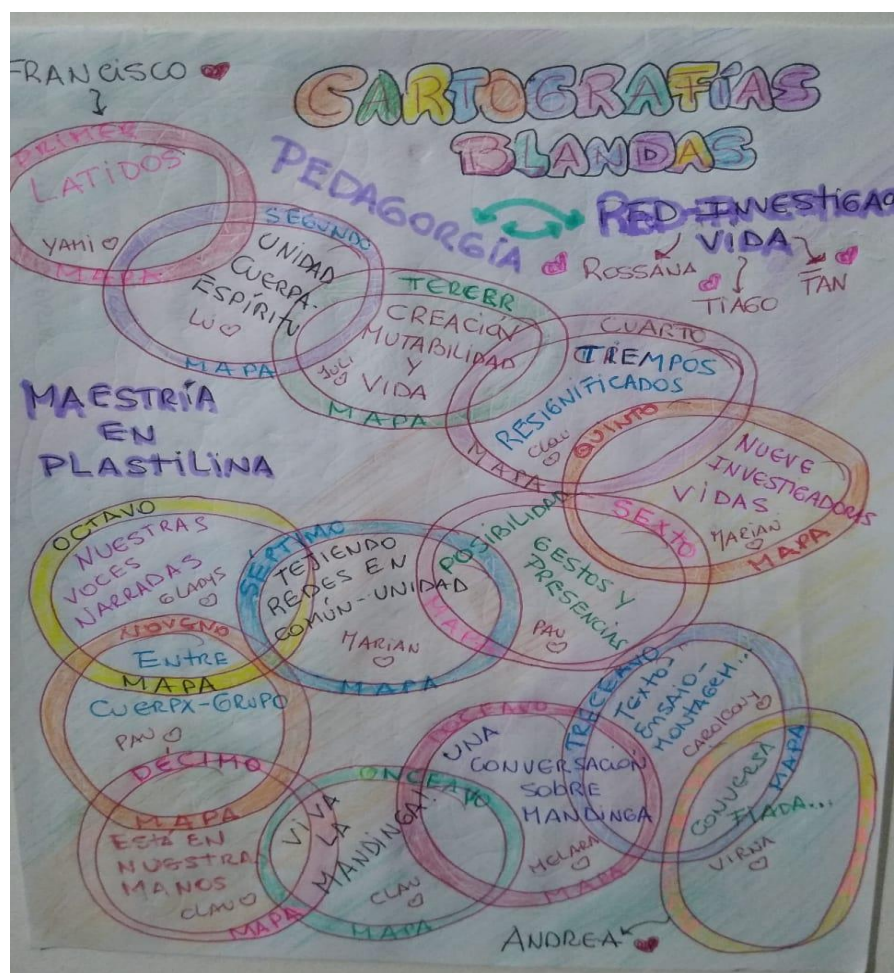 FRANCISCO
CARTOGRAFÍAS
BLANDAS
PRIMER
LATIDOS
YAMI
MAPA
PEDAGORGÍA
RED-INVESTIGA
VIDA
ROSSANA
TIAGO
TAN
SEGUNDO
UNIDAD
CUERPA-
ESPÍRITU
LU
MAPA
TERCER
CREACIÓN
MUTABILIDAD
Y
VIDA
JULI
MAPA
CUARTO
TIEMPOS
RESIGNIFICADOS
CLAU
MAPA
QUINTO
NUEVE
INVESTIGADORAS
VIDAS
MARIAN
MAPA
MAESTRÍA
EN
PLASTILINA
SEXTO
POSIBILIDAD
GESTOS Y
PRESENCIAS
PAU
MAPA
SÉPTIMO
TEJIENDO
REDES EN
COMÚN-UNIDAD
MARIAN
MAPA
OCTAVO
NUESTRAS
VOCES
NARRADAS
GLADYS
MAPA
NOVENO
ENTRE
CUERPX-GRUPO
PAU
MAPA
DÉCIMO
ESTÁ EN
NUESTRAS
MANOS
CLAU
MAPA
ONCEAVO
VIVA
LA
MANDINGA!
CLAU
MAPA
DOCEAVO
UNA
CONVERSACIÓN
SOBRE
MANDINGA
MCLARA
MAPA
TRECEAVO
TEXTO-
ENSAIO-
MONTAGEM...
CAROLCONY
MAPA
CONVERSA
FIADA...
VIRNA
ANDREA